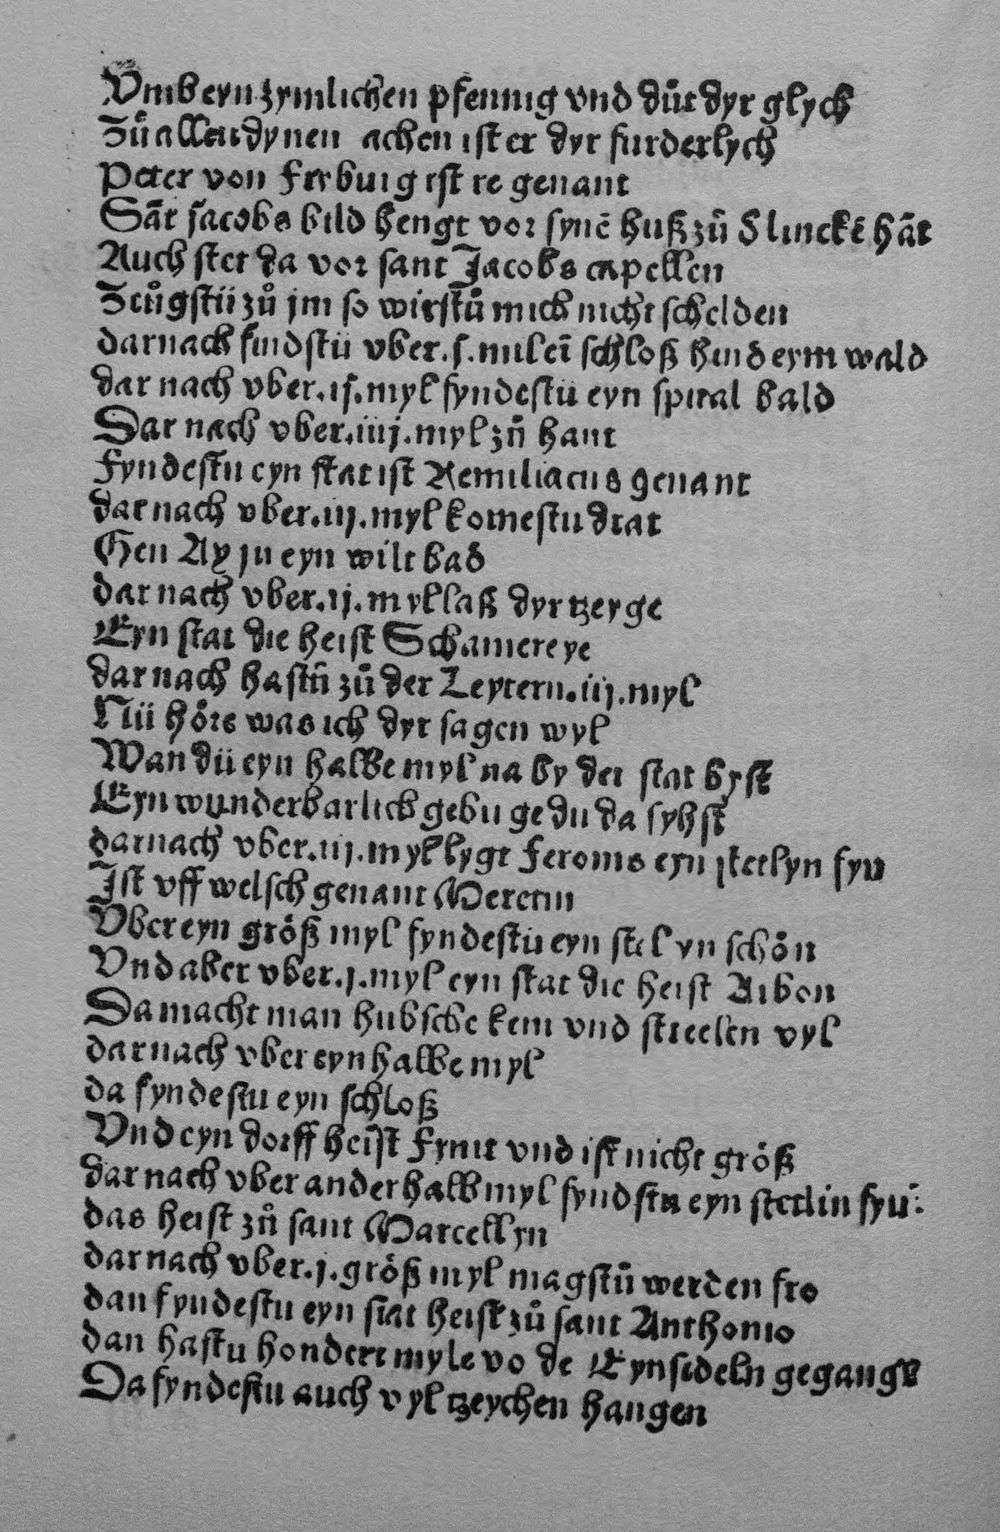 Vmb eyn zymlichen pfennig vnd düt dyr glych
Zů allen dynen achen ist er dyr furderlych
Peter von Fryburg ist re genant
Sāt Jacobs bild hengt vor synē huß zů Slinckē hāt
Auch stet da vor sant Jacobs capellen
Zeůgstü zů jm so wirstů mich nicht schelden
dar nach findstü vber .j. mil eī schloß hind eym wald
dar nach vber .ij. myl fyndestü eyn spital bald
Dar nach vber .iiij. myl zů hant
Fyndestu eyn stat ist Remiliacus genant
dar nach vber .iij. myl komestu drat
Gen Ax jn eyn wilt bad
dar nach vber .ij. myl laß dyr tzeyge
Eyn stat die heist Schamereye
dar nach hastū zů der Leytern .iij. myl
Nü höre was ich dyr sagen wyl
Wan dü eyn halbe myl na by der stat byst
Eyn wunderbarlich gebu ge du da syhst
dar nach vber .iij. myl lygt Feroms eyn stetlyn fyn
Ist vff welsch genant Meretin
Vber eyn größ myl fyndestu eyn stetlyn schön
Vnd aber vber .j. myl eyn stat die heist Aibon
Da macht man hubsche kem vnd streelen vyl
dar nach vber eyn halbe myl
da fyndestu eyn schloß
Vnd eyn dorff heist Fymt vnd ist nicht größ
dar nach vber anderhalb myl fyndstu eyn stetlin fyn:
das heist zů sant Marcellyn
dar nach vber .j. größ myl magstū werden fro
dan fyndestu eyn stat heist zů sant Anthonio
dan hastu hondert myle vo de Eynsideln gegange
Da fyndestu auch vyl tzeychen hangen